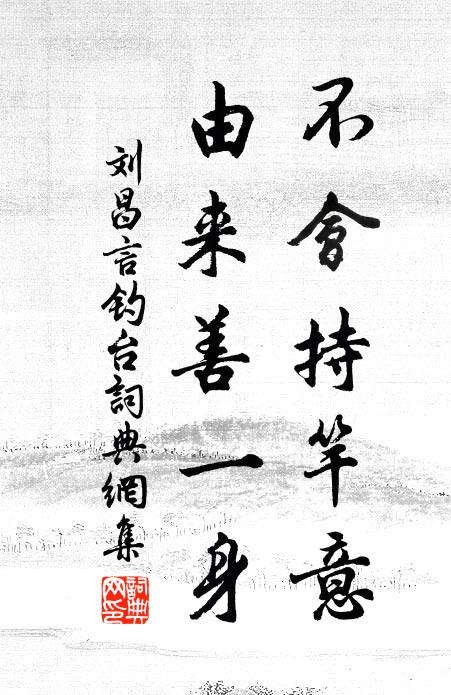 不會持竿意
由来善一身
刘昌言钓台詞典網集
詞典网印